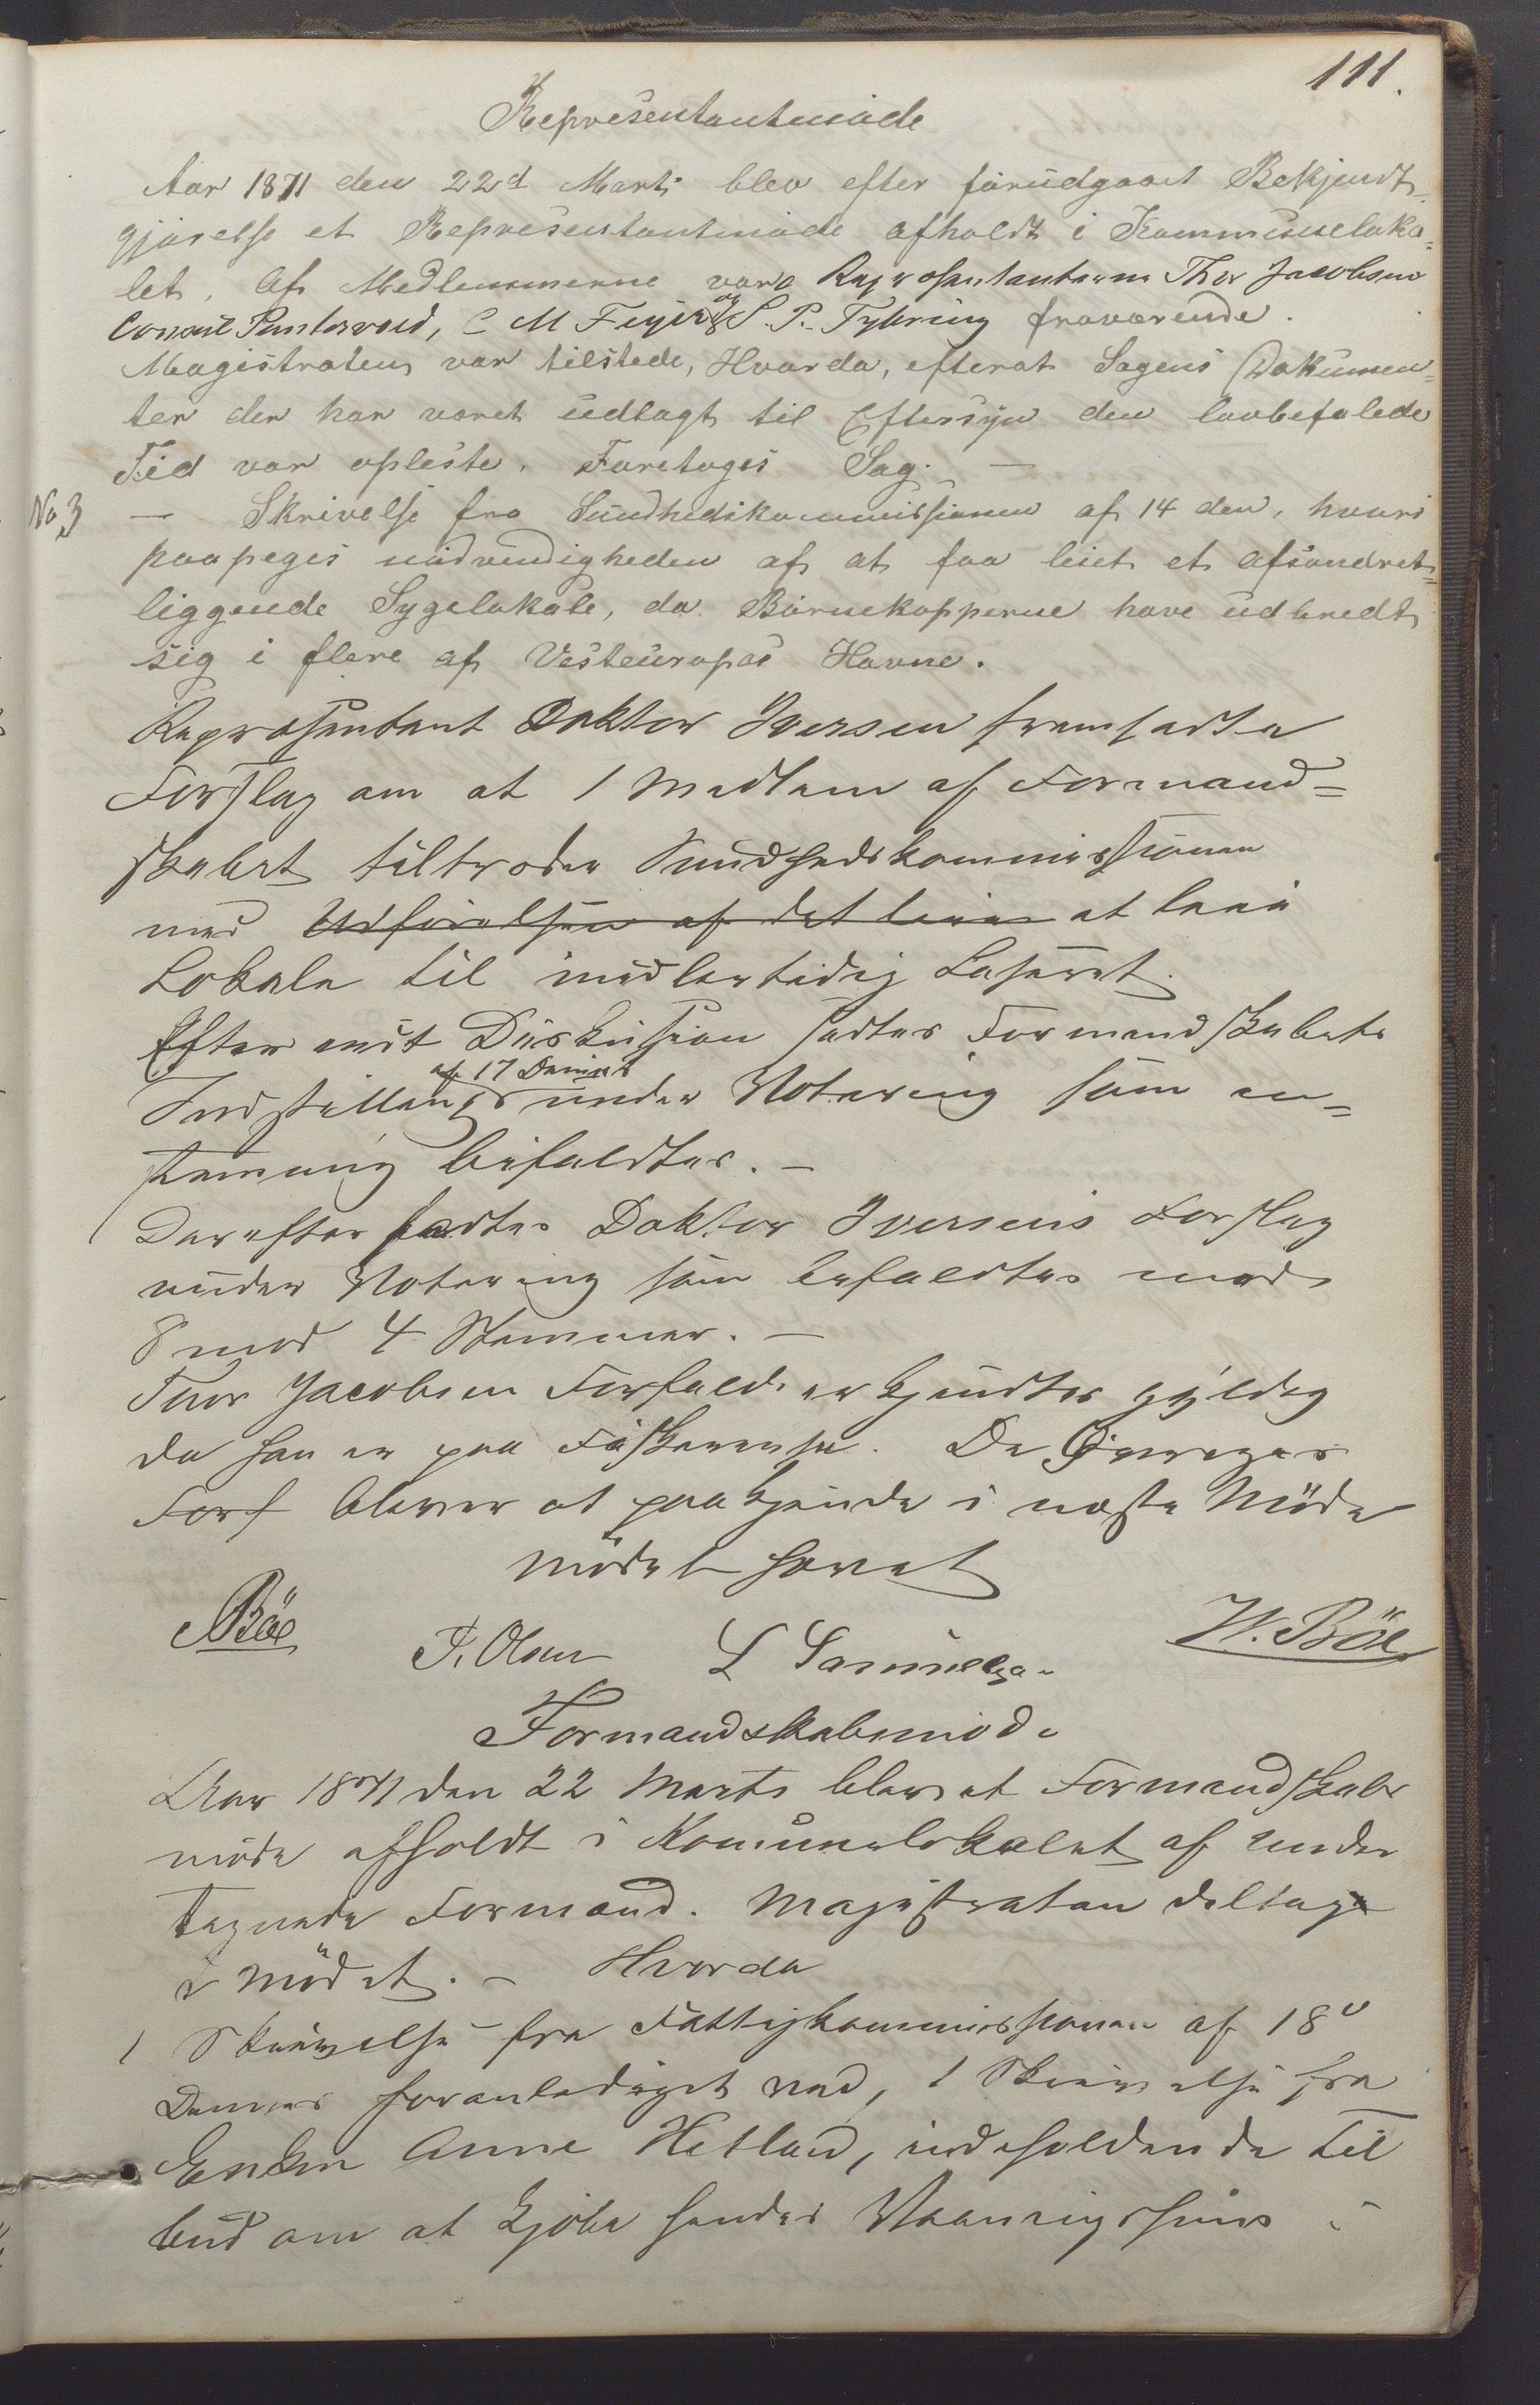 111.
Representantmöde
Aar 1871 den 22d Marts blev efter forudgaaet Bekjendt-
gjörelse et Representantmöde afholdt i Kommuneloka=
let. Af Medlemmerne vare Repræsentanterne Thor Jacobsen
Consul Puntervold, C M Feyer og S. P. Tybring fraværende.
Magistraten var tilstede, Hvorda, efterat Sagens Dokumen=
ter der har været udlagt til Eftersyn den lovbefalede
Tid var opleste, Foretoges Sag. —
No 3 — Skrivelse fra Sundhedskommissionen af 14 den, hvori
paapeges nödvendigheden af at faa leiet et afsondret=
liggende Sygelokale, da Börnekopperne have udbredt
sig i flere af Vesteuropas Havne.
Repræsentant Doktor Iversen fremsatte
Forslag om at 1 Medlem af Formand=
skabet tiltræder Sundhedskommissionen
med Udförelsen af det leie at leie
Lokale til midlertidig Lasaret.
Efter endt Diskussion sattes Formandskabets
af 17 Dennes
Indstilling under Votering som en=
stemmig bifaldtes. —
Derefter sattes Doktor Iversens Forslag
under Votering som bifaldtes med
8 mod 4 Stemmer. —
Thor Jacobsen Forfald erkjendtes gyldig
da han er paa Fiskereise. De Övriges
Forf bliver at paakjende i næste Möde
Mödet hævet
Böe
P. Olsen L Samuelsen W. Böe
Formandskabsmöde
Aar 1871 den 22 Marts blev et Formandskabs
möde afholdt i Komunelokalet af under
tegnede Formænd. Magistraten deltog
i Mödet. — Hvorda
1 Skrivelse fra Fattigkommissionen af 18de
Dennes foranlediget ved, 1 Skrivelse fra
Enken Anne Hetland, indeholdende Til
bud om at kjöbe hendes Vaaningshuus i